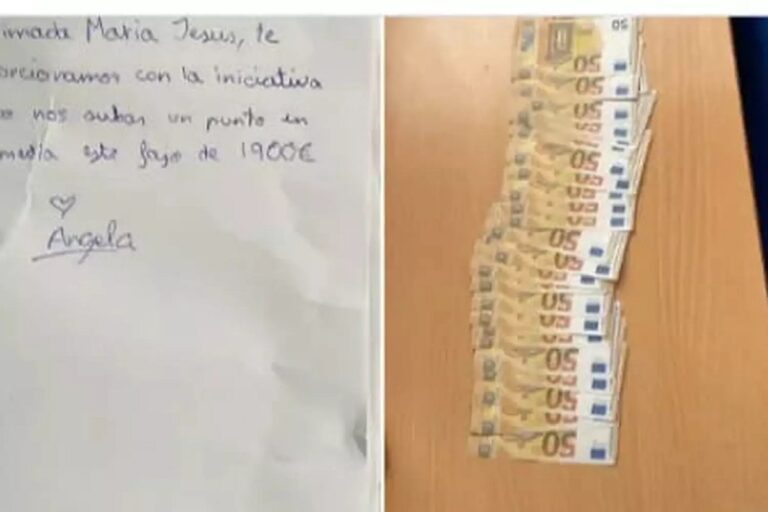 imada Maria Jesus, te
orcionamos con la iniciativa
e nos suban un punto en
media este fajo de 1900€
Angela
50
50
50
50
50
50
50
50
50
50